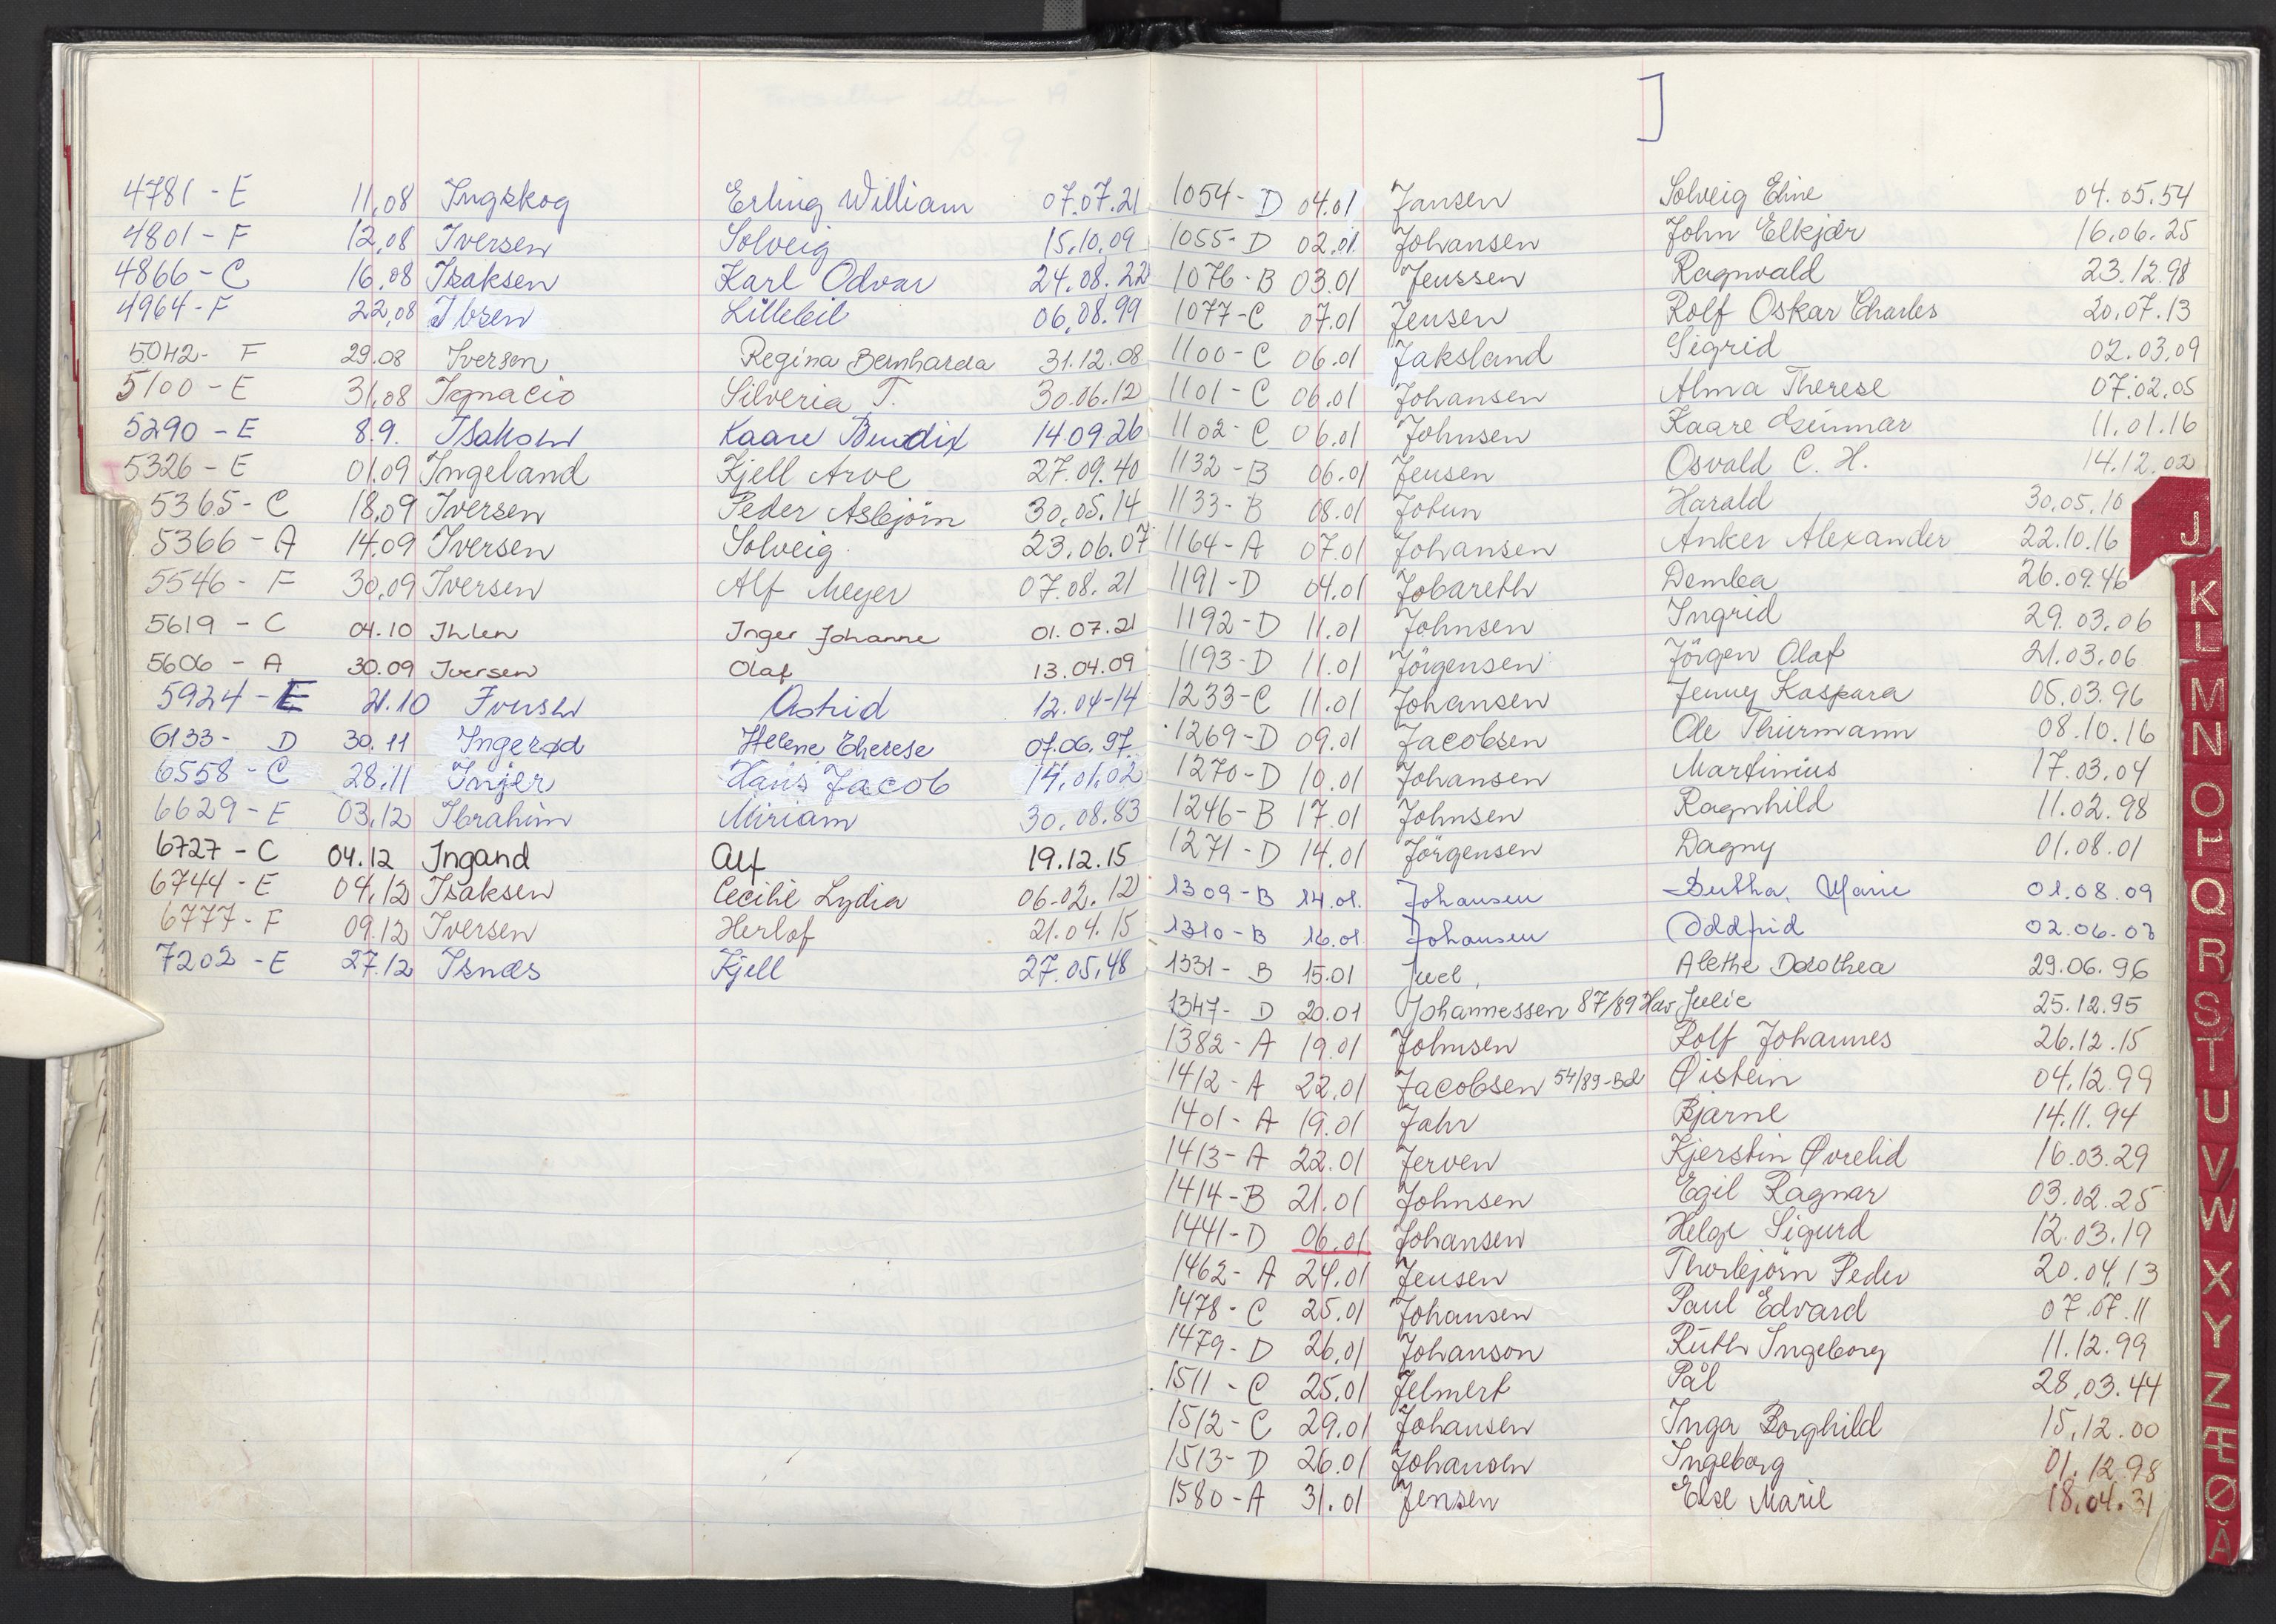 4781 - E 11.08 Ingskog Erling William 07.07.21
4801 - F 12.08 Iversen Solveig 15.10.09
4866 - C 16.08 Isaksen Karl Odvar 24.08.22
4964 - F 22.08 Ibsen Lillebil 06.08.99
5042 - F 29.08 Iversen Regina Bernharda 31.12.08
5100 - E 31.08 Ignacio Silveria T. 30.06.12
5290 - E 8.9. Isaksen Kaare Bendix 14.09.26
5326 - E 01.09 Ingeland Kjell Arve 27.09.40
5365 - C 18.09 Iversen Peder Asbjörn 30.05.14
5366 - A 14.09 Iversen Solveig 23.06.07
5546 - F 30.09 Iversen Alf Meyer 07.08.21
5619 - C 04.10 Ihlen Inger Johanne 01.07.21
5606 - A 30.09 Iversen Olaf 13.04.09
5924 - E 21.10 Iversen Astrid 12.04-14
6133 - D 30.11 Ingerød Helene Therese 07.06.97
6558 - C 28.11 Injer Hans Jacob 14.01.02
6629 - E 03.12 Ibrahim Miriam 30.08.83
6727 - C 04.12 Ingand Alf 19.12.15
6744 - E 04.12 Isaksen Cecilie Lydia 06.02.12
6777 - F 09.12 Iversen Herlof 21.04.15
7202 - E 27.12 Isnæs Kjell 27.05.48
J
1054 - D 04.01 Jansen Solveig Eline 04.05.54
1055 - D 02.01 Johansen John Elkjær 16.06.25
1076 - B 03.01 Jenssen Ragnvald 23.12.98
1077 - C 07.01 Jensen Rolf Oskar Charles 20.07.13
1100 - C 06.01 Jaksland Sigrid 02.03.09
1101 - C 06.01 Johansen Alma Therese 07.02.05
1102 - C 06.01 Johnsen Kaare Gunnar 11.01.16
1132 - B 06.01 Jensen Osvald C. H. 14.12.02
1133 - B 08.01 Jotun Harald 30.05.10
1164 - A 07.01 Johansen Anker Alexander 22.10.16
1191 - D 04.01 Jobareth Demba 26.09.46
1192 - D 11.01 Johnsen Ingrid 29.03.06
1193 - D 11.01 Jörgensen Jörgen Olaf 21.03.06
1233 - C 11.01 Johansen Jenny Kaspara 05.03.96
1269 - D 09.01 Jacobsen Ole Thurmann 08.10.16
1270 - D 10.01 Johansen Martinius 17.03.04
1246 - B 17.01 Johnsen Ragnhild 11.02.98
1271 - D 14.01 Jörgensen Dagny 01.08.01
1309 - B 14.01. Johansen Marie 01.08.09
1310 - B 16.01 Johansen Oddfrid
1331 - B 15.01 Juel Alethe Dorothea 29.06.96
1347 - D 20.01 Johannessen 87/89 Hav Julie 25.12.95
1382 - A 19.01 Johnsen Rolf Johannes 26.12.15
1412 - A 22.01 Jacobsen 54/89-Bd Øistein 04.12.99
1401 - A 19.01 Jahr Bjarne 14.11.94
1413 - A 22.01 Jerven Kjerstin Øvrelid 16.03.29
1414 - B 21.01 Johnsen Egil Ragnar 03.02.25
1441 - D 06.01 Johansen Helge Sigurd 12.03.19
1462 - A 24.01 Jensen Thorbjörn Peder 20.04.13
1478 - C 25.01 Johansen Paul Edvard 07.07.11
1479 - D 26.01 Johanson Ruth Ingeborg 11.12.99
1511 - C 25.01 Jelmert Pål 28.03.44
1512 - C 29.01 Johansen Inga Borghild 15.12.00
1513 - D 26.01 Johansen Ingeborg 01.12.98
1580 - A 31.01 Jensen Else Marie 18.04.31
J
K
L
M
N
O
P
Q
R
S
T
U
V
W
X
Y
Z
Æ
Ø
Å